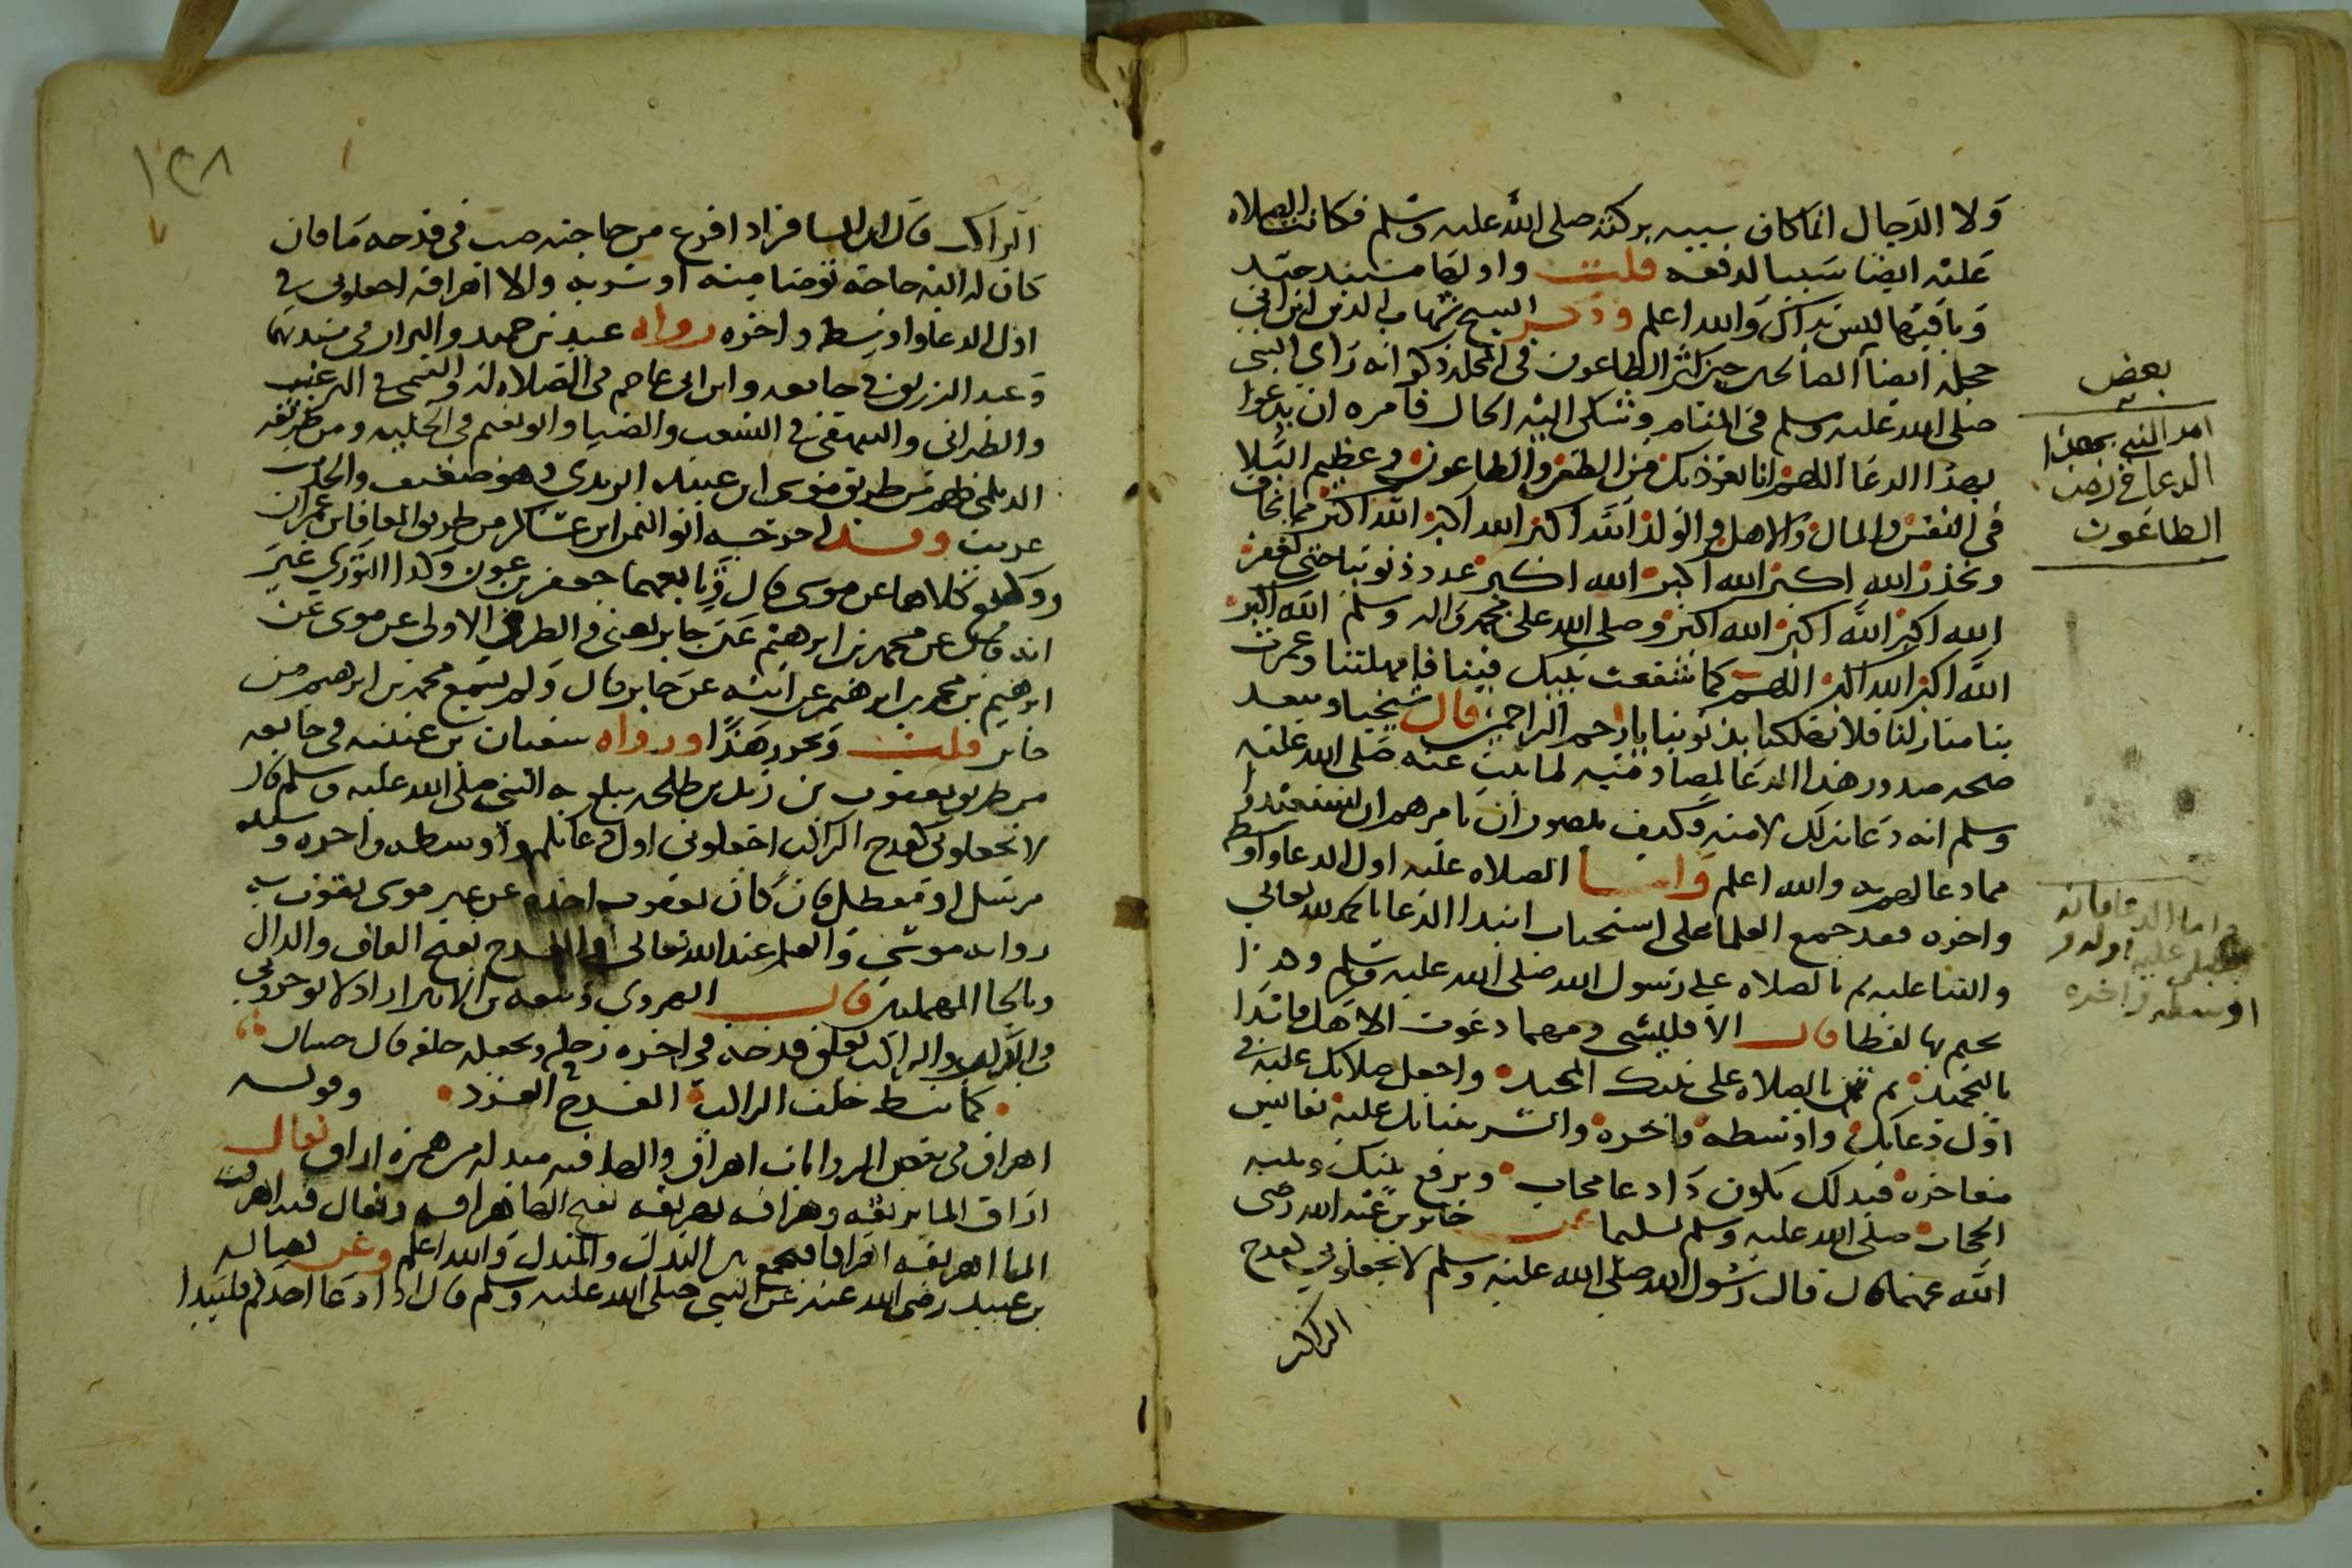 ولا الدجال انما كان سببه بركته صلى الله عليه وسلم فكانت الصلاة
عليه ايضا سببا لدفعه قلت واولها مسند جيد
وباقيها ليس بذاك والله اعلم وذكر الشيخ شهاب الدين ابن ابي
حجلة ايضا ان بعض الصالحين حين كثر الطاعون في المحلة ذكر انه راى النبي
صلى الله عليه وسلم في المنام وشكى اليه الحال فامره ان يدعوا
بهذا الدعا اللهم انا نعوذ بك من الطعن والطاعون وعظيم البلا
في النفس والمال والاهل والولد الله اكبر الله اكبر الله اكبر مما نخاف
ونحذر الله اكبر الله اكبر الله اكبر عدد ذنوبنا حتى تغفر
الله اكبر الله اكبر الله اكبر وصلى الله على محمد واله وسلم الله اكبر
الله اكبر الله اكبر اللهم كما شفعت نبيك فينا فامهلتنا وعمرت
بنا منازلنا فلا تهلكنا بذنوبنا يا ارحم الراحمين قال شيخنا ويبعد
صحة صدور هذا الدعا لمصادمته لما ثبت عنه صلى الله عليه
وسلم انه دعا بذلك لامته وكيف يتصور ان يامرهم ان يستعيذوا
مما دعا لهم به والله اعلم واما الصلاه عليه اول الدعا واوسطه
واخره فقد جمع العلما على استحباب ابتدا الدعا بالحمد لله تعالى
والثنا عليه ثم بالصلاه على رسول الله صلى الله عليه وسلم وهذا
يختم بها لفظا قال الاقليشي ومهما دعوت الاهك فابدا
بالتحميد ثم ثن بالصلاه على نبيك المجيد واجعل صلاتك عليه في
اول دعايك واوسطه واخره وانشر بثنايك عليه نفايس
مفاخره فبذلك تكون ذا دعا مجاب ويرفع بينك وبينه
الحجاب صلى الله عليه وسلم تسليما عن جابر بن عبد الله رضي
الله عنهما قال قال رسول الله صلى الله عليه وسلم لا تجعلوني كقدح
الراكب
بعض
امر النبي بهذا
الدعا في زمن
الطاعون
واما الدعا فانه
يصلى عليه اوله و
اوسطه واخره
١٢٨
الراكب قال ان المسافر اذا فرغ من حاجته صب في قدحه ما فان
كان له اليه حاجة توضا منه او شربه والا اهراقه اجعلوني في
اول الدعا واوسطه واخره رواه عبد بن حميد والبزار في مسنديهما
وعبد الرزاق في جامعه وابن ابي عاصم في الصلاه له والتيمي في الترغيب
والطبراني والبيهقي في الشعب والضيا وابو نعيم في الحليه ومن طريقه
الديلمي كلهم من طريق موسى ابن عبيده الربذي وهو ضعيف والحديث
غريب وقد اخرجه ابو اليمن ابن عساكر من طريق المعافا بن عمران
ووكيع كلاهما عن موسى قال وتابعهما جعفر بن عون وكذا الثوري غير
انه قال عن محمد بن ابرهيم عن جابر يعني في الطرق الاولى عن موسى عن
ابرهيم بن محمد بن ابرهيم عن ابيه عن جابر قال ولم يسمع محمد بن ابرهيم من
جابر قلت وتحرر هذا ورواه سفيان بن عيينه في جامعه
من طريق يعقوب بن زيد بن طلحه يبلغ به النبي صلى الله عليه وسلم قال
لا تجعلوني كقدح الراكب اجعلوني اول دعايكم واوسطه واخره وسنده
مرسل او معضل فان كان يعقوب اخذه عن غير موسى تقوت به
روايه موسى والعلم عند الله تعالى والقدح بفتح القاف والدال
وبالحا المهملتين قال الهروي وتبعه بن الاثير اراد لا توخروني
في الذكر والراكب يعلق قدحه في اخره رحله ويجعله خلفه قال حسان
كما نيط خلف الراكب القدح الفرد وقوله
اهراق في بعض الروايات اهراق والها فيه مبدله من همزه اراق يقال
اراق الما يريقه وهراقه يهريقه بفتح الها هراقه ويقال فيه اهرقت
الما اهريقه اهراقا فيجمع بين البدل والمبدل والله اعلم وعن فضاله
بن عبيد رضي الله عنه عن النبي صلى الله عليه وسلم قال اذا دعا احدكم فليبدا